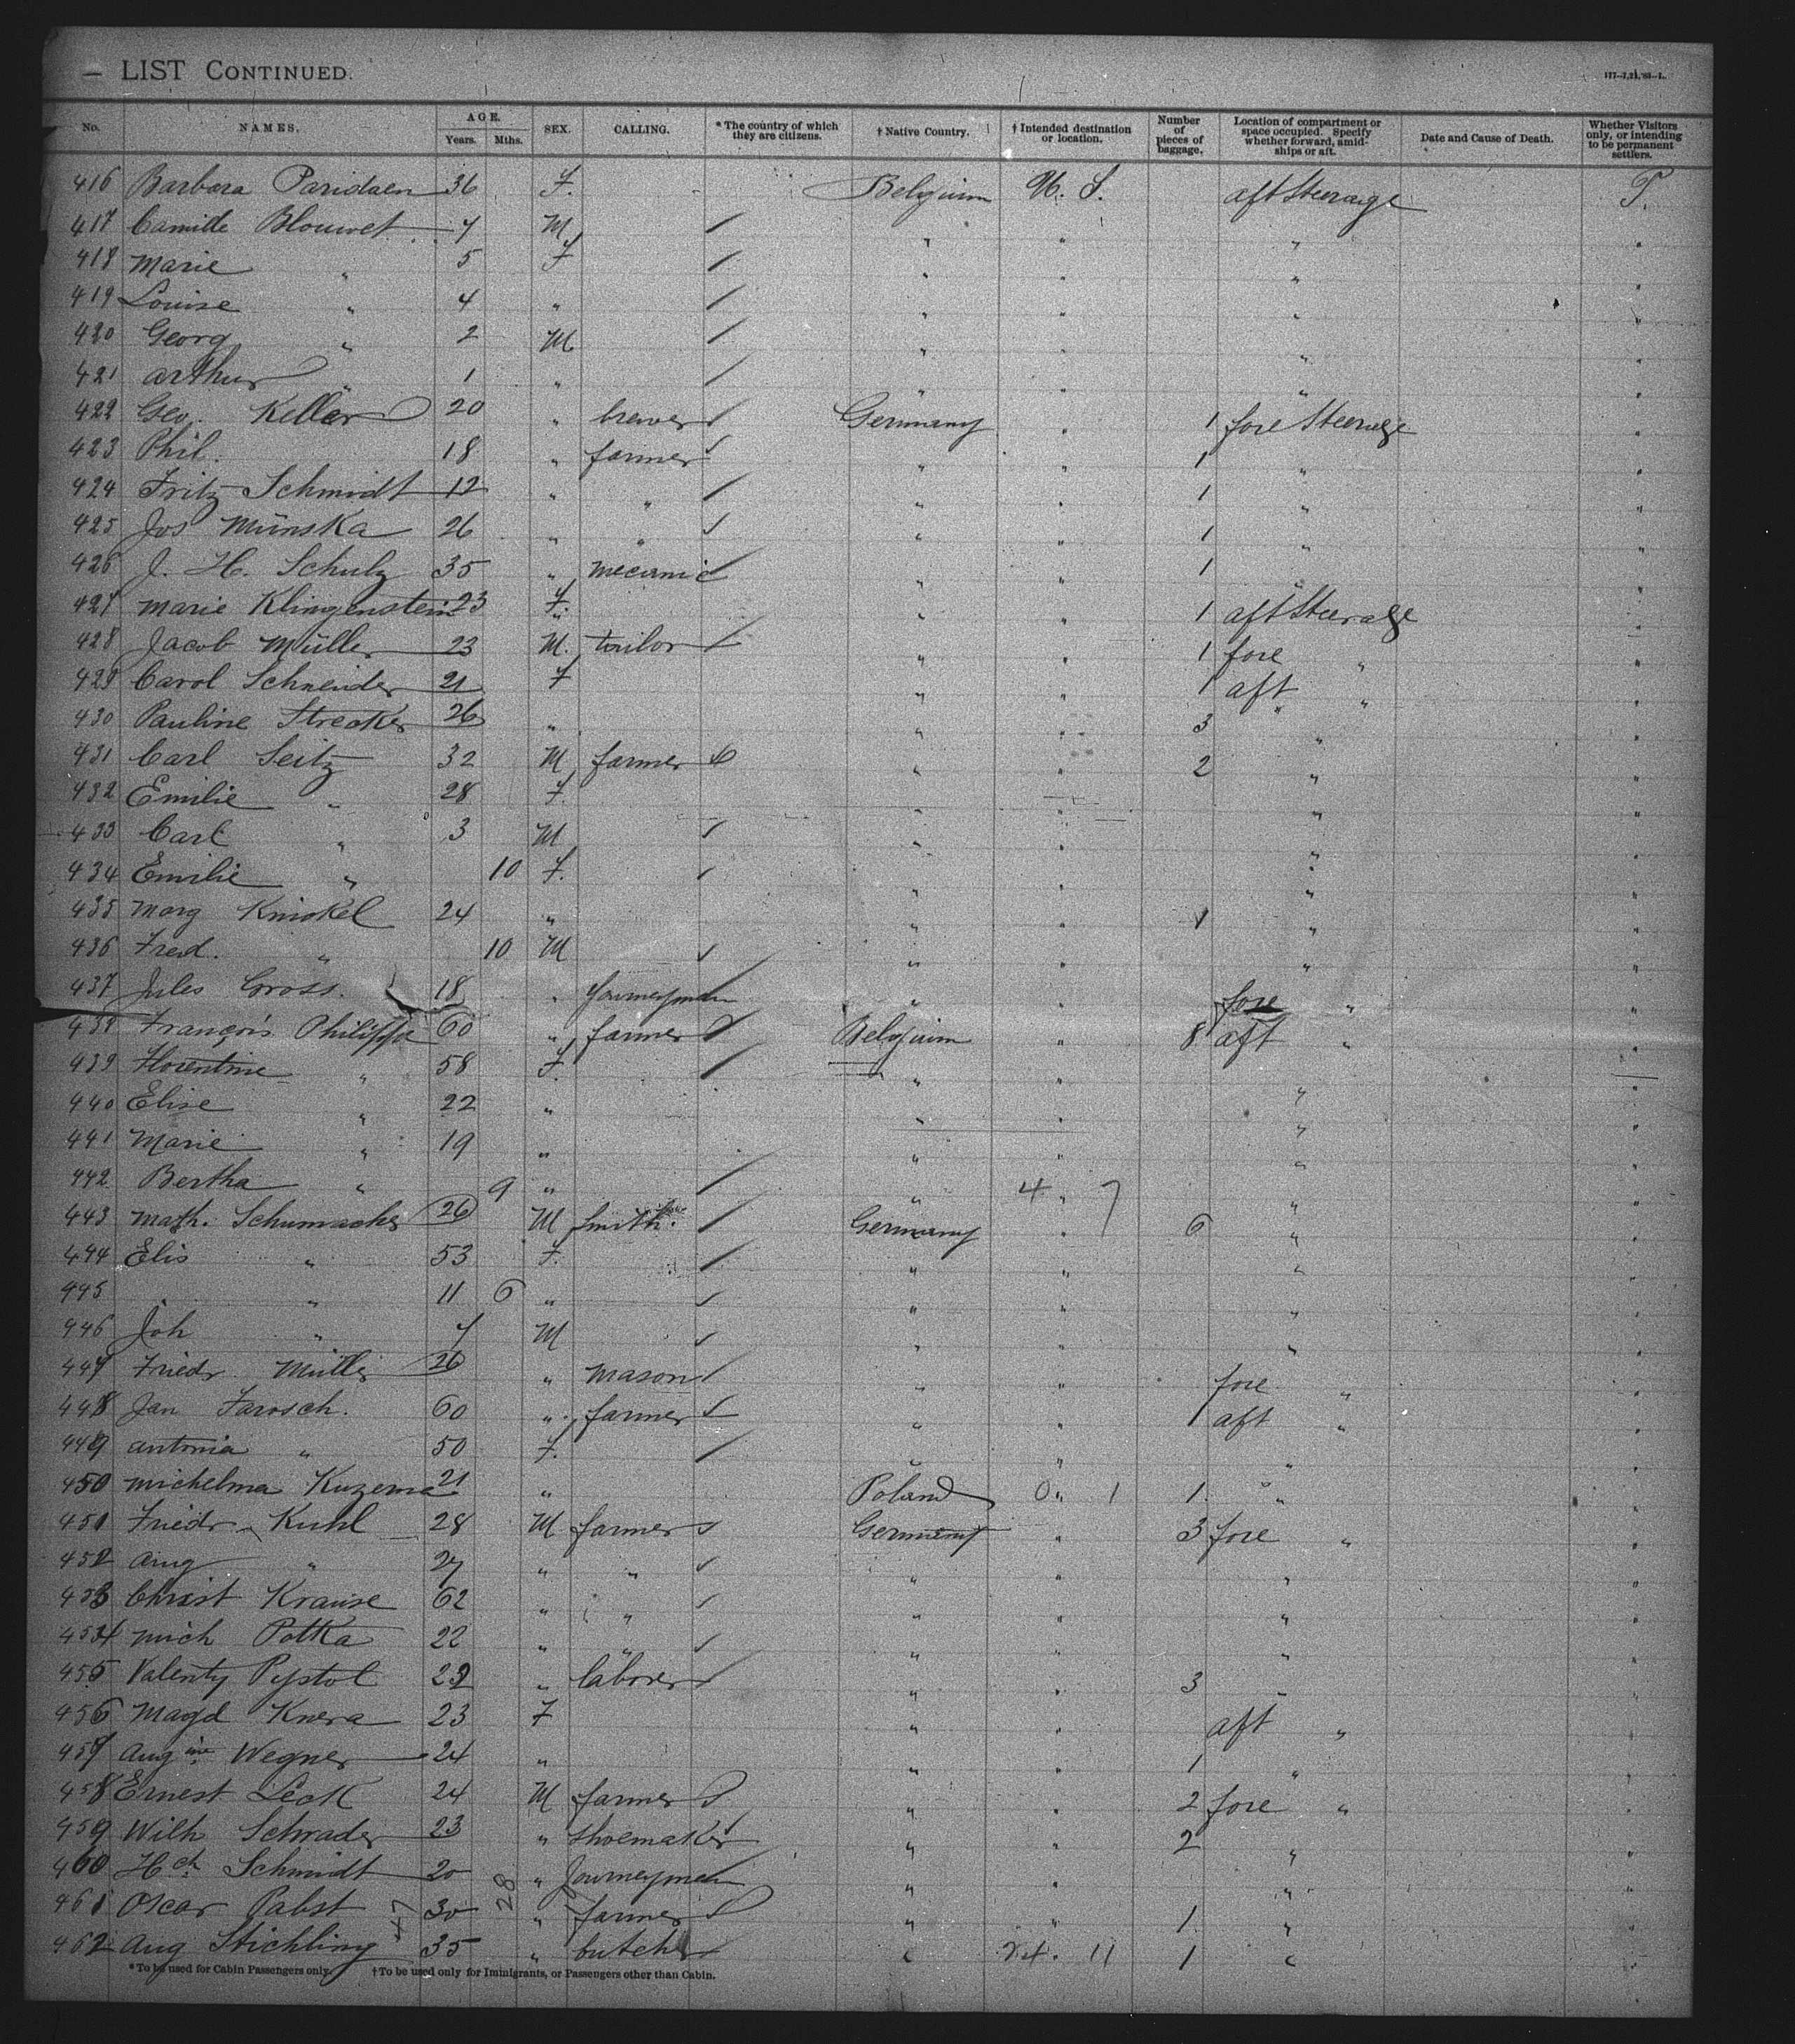 — LIST CONTINUED.
No. NAMES. AGE. Years. Mths. SEX. CALLING. * The country of which they are citizens. † Native Country. † Intended destination or location. Number of pieces of baggage. Location of compartment or space occupied. Specify whether forward, amidships or aft. Date and Cause of Death. Whether Visitors only, or intending to be permanent settlers.
416 Barbara Paridaen 36 F. Belgium U. S. aft Steerage P.
417 Camille Blouwet 7 M " " " "
418 Marie " 5 F " " " "
419 Louise " 4 " " " " "
420 Georg " 2 M " " " "
421 Arthur " 1 " " " " "
422 Geo. Keller 20 " brewer Germany " 1 fore Steerage "
423 Phil. 18 " farmer " " 1 " "
424 Fritz Schmidt 12 " " " " 1 " "
425 Jos Münska 26 " " " " 1 " "
426 J. H. Schulz 35 " mecanic " " 1 " "
427 Marie Klingenstein 23 F. " " 1 aft Steerage "
428 Jacob Müller 23 M. tailor " " 1 fore " "
429 Carol Schneider 21 F " " 1 aft " "
430 Pauline Strecker 26 " " " 3 " "
431 Carl Seitz 32 M farmer " " 2 " "
432 Emilie " 28 F. " " " "
433 Carl " 3 M " " " "
434 Emilie " 10 F. " " " "
435 Marg Knickel 24 " " " 1 " "
436 Fred. " 10 M " " " "
437 Jules Gross. 18 " Journeyman " " fore " "
438 François Philippe 60 " farmer Belgium " 8 aft " "
439 Florentine " 58 F. " " " "
440 Elise " 22 " " " " "
441 Marie " 19 " " " " "
442 Bertha " 9 " " 4 " 7 " "
443 Math. Schumacher 26 M Smith. Germany " 6 " "
444 Elis " 53 F. " " " "
445 " " 11 6 " " " " "
446 Joh " 7 M " " " "
447 Friedr. Müller 26 " mason " " fore " "
448 Jan Jarosch. 60 " farmer " " 1 aft " "
449 Antonia " 50 F. " " " "
450 Michelma Kuzema 21 " Poland 0 " 1 1 " "
451 Friedr. Kuhl 28 M farmer Germany " 3 fore " "
452 Aug " 27 " " " " " "
453 Christ Krause 62 " " " " " "
454 Mich Potka 22 " " " " " "
455 Valenty Pystol 22 " laborer " " 3 " "
456 Magd Knera 23 F " " aft " "
457 Augine Wegner 24 " " " 1 " "
458 Ernest Leck 24 M farmer " " 2 fore " "
459 Wilh Schrader 23 " Shoemaker " " 2 " "
460 Hch Schmidt 20 " Journeyman " " " "
461 Oscar Pabst 47 30 28 " farmer " " 1 " "
462 Aug Stichling 35 " butcher " 24 . 11 1 " "
*To be used for Cabin Passengers only. †To be used only for Immigrants, or Passengers other than Cabin.